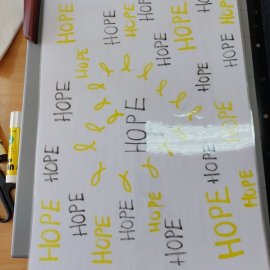 HOPE
HOPE
HOPE
HOPE
HOPE
HOPE
HOPE
HOPE
HOPE
HOPE
HOPE
HOPE
HOPE
HOPE
HOPE
HOPE
HOPE
HOPE
HOPE
HOPE
HOPE
HOPE
HOPE
HOPE
HOPE